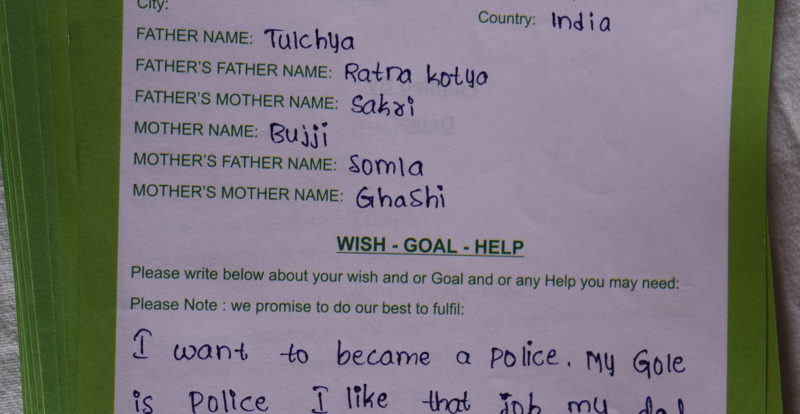 City:
Country: India
FATHER NAME: Tulchya
FATHER'S FATHER NAME: Ratna kotya
FATHER'S MOTHER NAME: Sakri
MOTHER NAME: Bujji
MOTHER'S FATHER NAME: Somla
MOTHER'S MOTHER NAME: Ghashi
WISH - GOAL - HELP
Please write below about your wish and or Goal and or any Help you may need:
Please Note : we promise to do our best to fulfil:
I want to became a police. My Gole
is police I like that job my dad